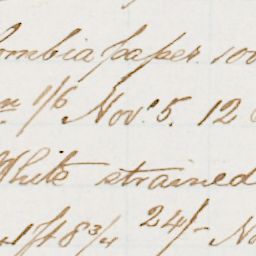 ombia paper 100
1/6 Nov. 5. 12
White strained
1 ft 8 3/4 24/- No